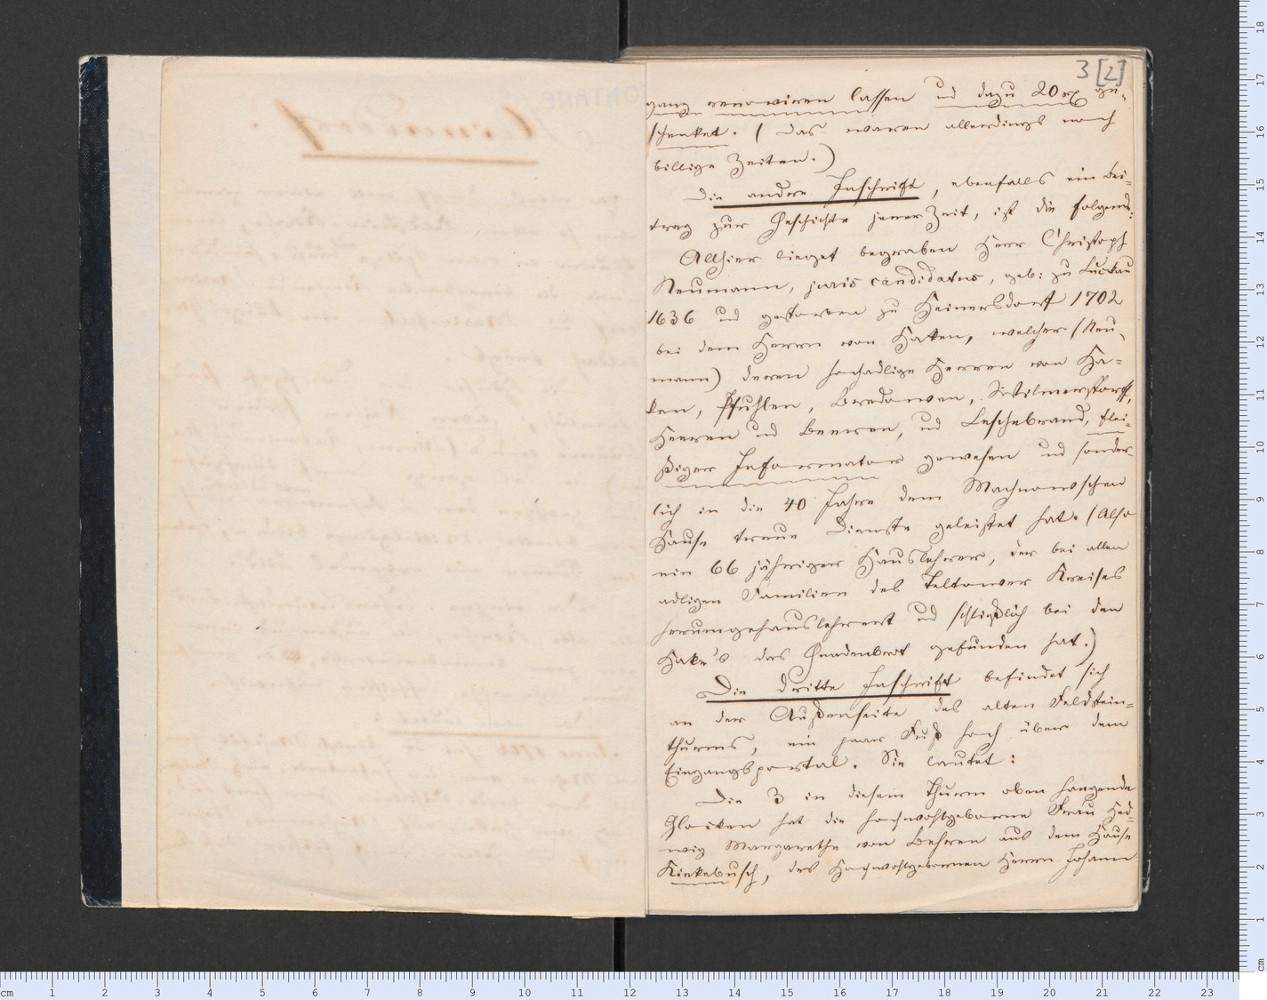 3 [2]
ganz renoviren lassen und dazu 20 rℓ ge-
schenket. (Das waren allerdings noch
billige Zeiten.)
Die andre Inschrift, ebenfalls ein Bei-
trag zur Geschichte jener Zeit, ist die folgende:
Allhier lieget begraben Herr Christoph
Neumann, juris candidatus, geb: zu Luckau
1636 und gestorben zu Heinersdorf 1702
bei dem Herrn von Haken, welcher (Neu-
mann) deren hochadlige Herren von Ha-
ken, Pfuhlen, Bredowen, Wilmerstorff,
Heeren und Beeren, und Leschebrand, flei-
ßiger Informator gewesen und sonder-
lich in die 40 Jahre dem Machnowschen
Hause treue Dienste geleistet hat. (Also
ein 66 jähriger Hauslehrer, der bei allen
adligen Familien des Teltower Kreises
herumgehauslehrert und schließlich bei den
Hake's das Gnadenbrot gefunden hat.)
Die dritte Inschrift befindet sich
an der Außenseite des alten Feldstein-
thurms, ein paar Fuß hoch über dem
Eingangsportal. Sie lautet:
Die 3 in diesem Thurm oben hangende
Glocken hat die hochwohlgeborne Frau Hed-
wig Margarethe von Beeren aus dem Hause
Kiekebusch, des Hochwohlgebornen Herrn Johann